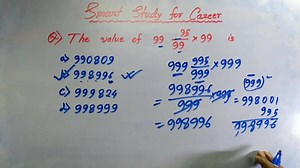 Smart Study for Career
Q) The value of 99 95/99 × 99 is
a) 990809
b) 998996
c) 999824
d) 998999
999 995/999 × 999
= 998996/999 × 999
= 998996
(999)²
= 998001
995
998996